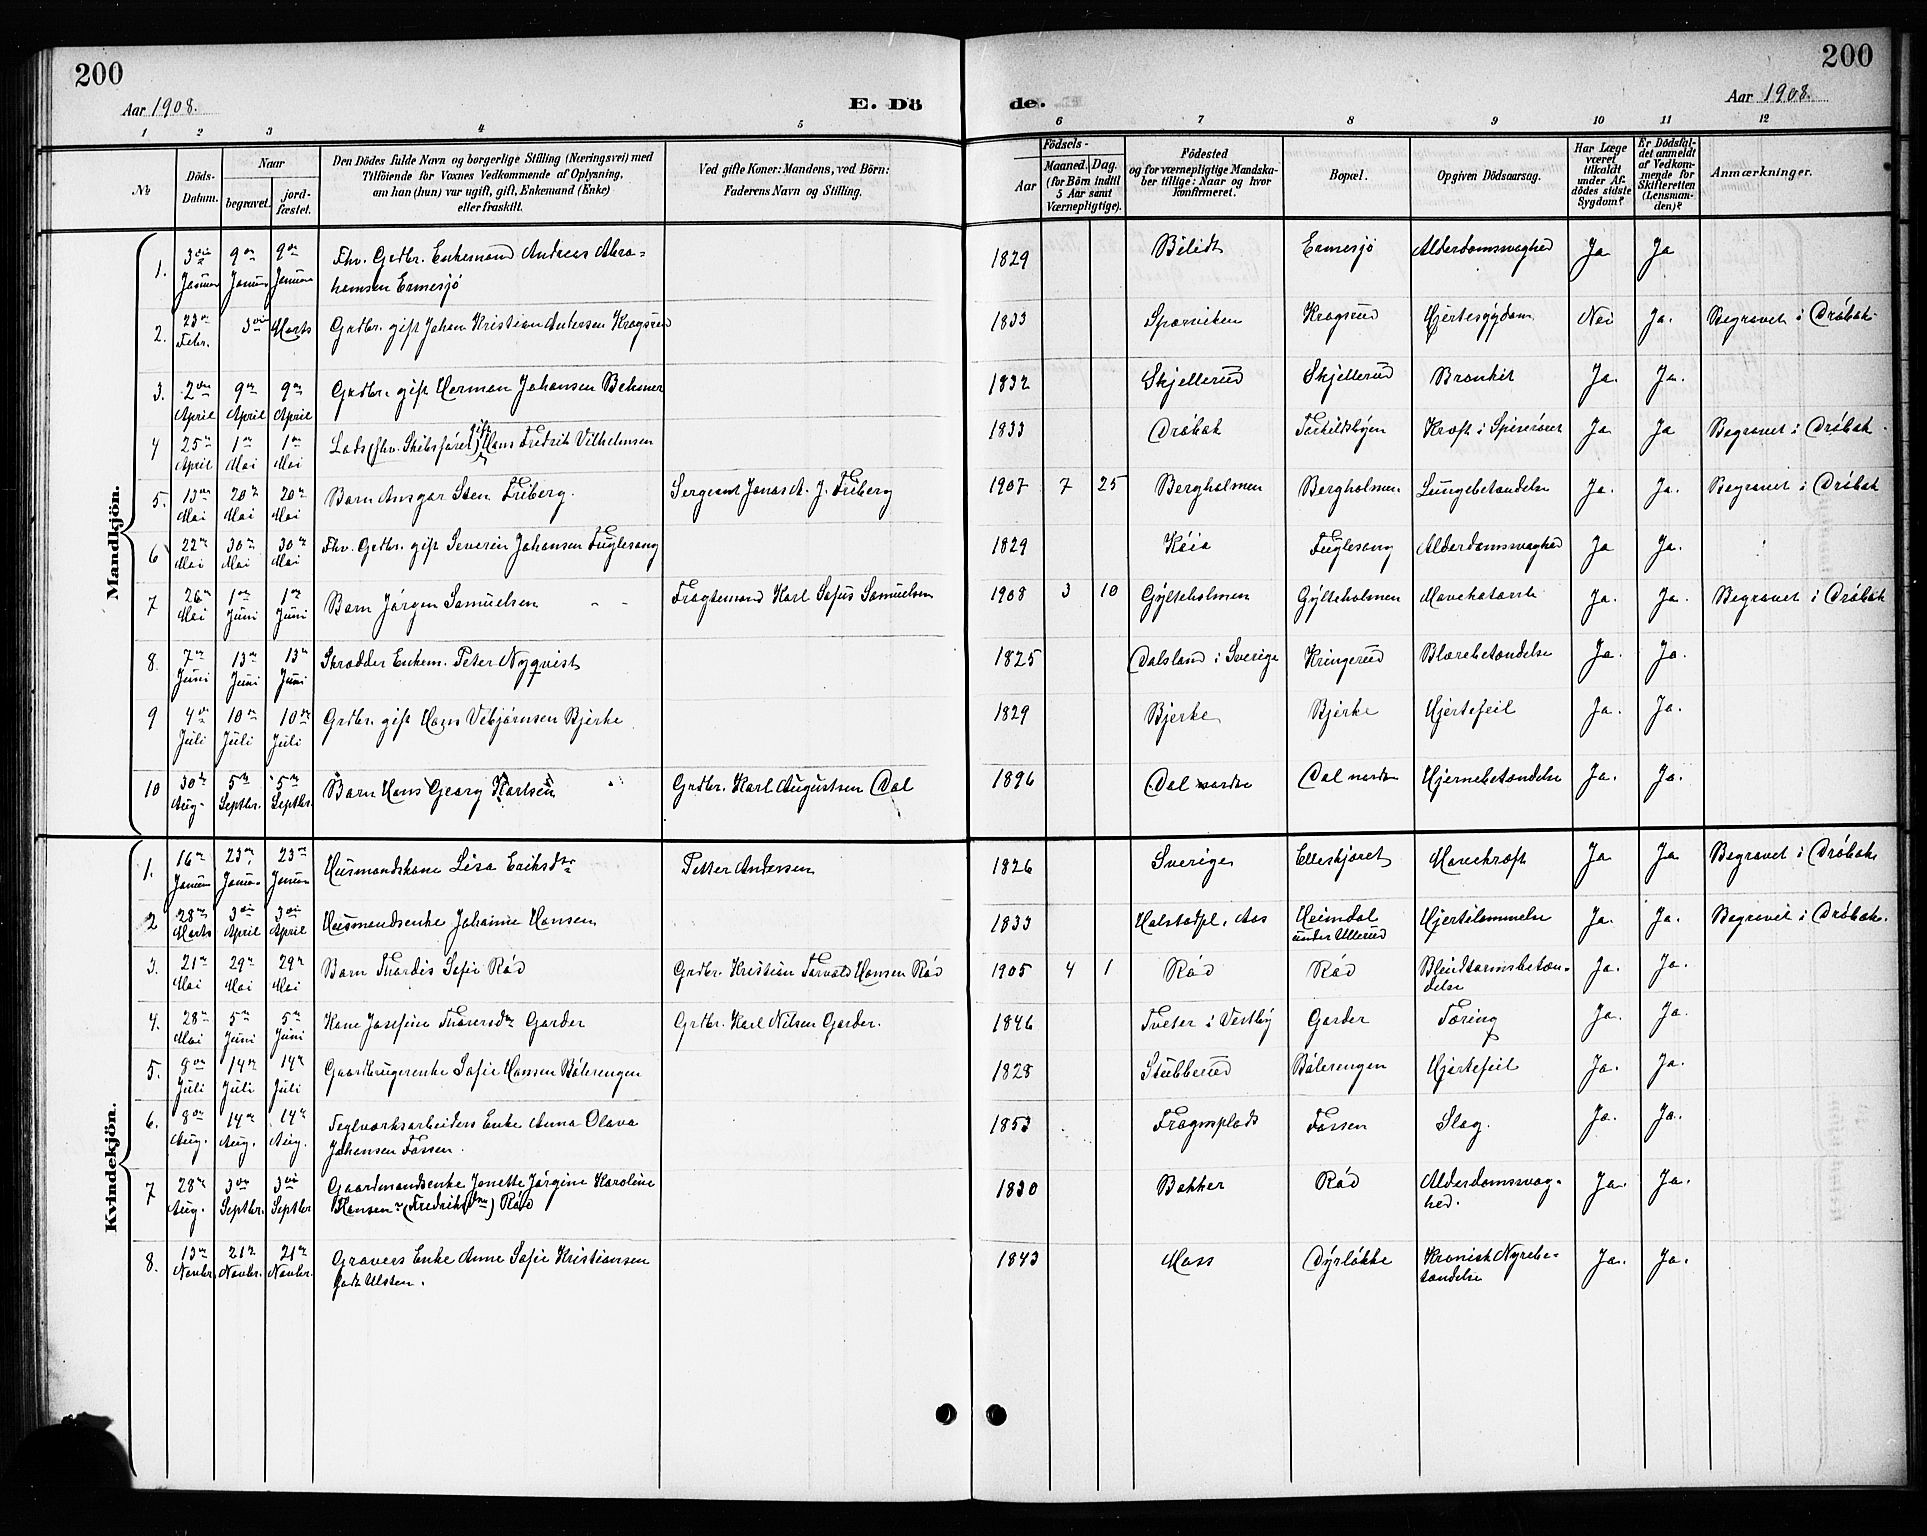 200
200
Aar 1908.
E. Dö
de.
Aar 1908.
1 2 3 4 5 6 7 8 9 10 11 12
№
Döds-
Datum.
Naar
begravet.
jord-
fæstet.
Den Dödes fulde Navn og borgerlige Stilling (Næringsvei) med
Tilföiende for Voxnes Vedkommende af Oplysning,
om han (hun) var ugift, gift, Enkemand (Enke)
eller fraskilt.
Ved gifte Koner: Mandens, ved Börn:
Faderens Navn og Stilling.
Födsels-
Aar
Maaned. Dag.
(for Börn indtil
5 Aar samt
Værnepligtige).
Födested
og for værnepligtige Mandska-
ber tillige: Naar og hvor
konfirmeret.
Bopæl.
Opgiven Dödsaarsag.
Har Læge
været
tilkaldt
under Af-
dödes sidste
Sygdom?
Er Dödsfal-
det anmeldt
af Vedkom-
mende for
Skifteretten
(Lensman-
den)?
Anmærkninger.
Mandkjön.
1. 3die Januar 9de Januar 9de Januar Fhv. Grdbr. Enkemand Andreas Abra-
hamsen Ermesjö 1829 Bilidt Ermesjö Alderdomsvaghed Ja Ja
2. 23de Febr. 3die Marts Grdbr. gift Johan Kristian Andersen Krogsrud 1833 Sparviken Krogsrud Hjertesygdom Nei Ja. Begravet i Dröbak
3. 2den April 9de April 9de April Grdbr. gift Herman Johansen Behmer 1832 Skjellerud Skjellerud Bronkit Ja. Ja.
4 25de April 1ste Mai 1ste Mai Lods (fhv. Skibsförer) gift Hans Fredrik Vilhelmsen 1833 Dröbak Torkildsbyen Kræft i Spiserøret Ja Ja Begravet i Dröbak.
5. 13de Mai 20de Mai 20de Mai Barn Ansgar Sten Friberg. Sergeant Jonas A. J. Friberg 1907 7 25 Bergholmen Bergholmen Lungebetændelse Ja. Ja. Begravet i Dröbak
6 22de Mai 30de Mai 30de Mai Fhv. Grdbr. gift Severin Johansen Fuglesang 1829 Kaia Fuglesang Alderdomsvaghed Ja Ja.
7 26de Mai 1ste Juni 1ste Juni Barn Jörgen Samuelsen Fragtemand Karl Sofus Samuelsen 1908 3 10 Gylteholmen Gylteholmen Mavekatarrh Ja. Ja. Begravet i Dröbak
8. 7de Juni 13de Juni 13de Juni Skrædder Enkem. Peter Nyqvist 1825 Dalsland i Sverige Kringerud Blærebetændelse Ja. Ja.
9 4de Juli 10de Juli 10de Juli Grdbr. gift Hans Vebjörnsen Bjerke 1829 Bjerke Bjerke Hjertefeil Ja. Ja.
10 30te Aug. 5te Septbr. 5te Septbr. Barn Hans Georg Karlsen Grdbr. Karl Augustsen Dal 1896 Dal nordre Dal nordre Hjernebetændelse Ja. Ja.
Kvindekjön.
1. 16de Januar 23de Januar 23de Januar Husmandskone Lisa Eriksdtr Petter Andersen 1826 Sverige Elleskjæret Mavekræft Ja Ja Begravet i Dröbak
2 28de Marts 3die April 3die April Husmandsenke Johanne Hansen 1833 Holstadpl. Aas Heimdal
under Ullerud Hjertelammelse Ja. Ja. Begravet i Dröbak.
3. 21de Mai 29de Mai 29de Mai Barn Thordis Sofie Röd Grdbr. Kristian Torvald Hansen Röd 1905 4 1 Röd Röd Blindtarmsbetæn-
delse Ja. Ja.
4. 28de Mai 5te Juni 5te Juni Kone Josefine Thoresdtr Garder Grdbr. Karl Nilsen Garder. 1846 Tveter i Vestby Garder Tæring Ja. Ja.
5. 8de Juli 14de Juli 14de Juli Gaardbrugerenke Sofie Hansen Bölerengen 1828 Stubberud Bölerengen Hjertefeil Ja. Ja.
6. 8de Aug. 14de Aug. 14de Aug. Teglværksarbeiders Enke Anna Olava
Johansen Fossen. 1853 Fragmplads Fossen Slag. Ja. Ja.
7 28de Aug. 3die Septbr. 3die Septbr Gaardmandsenke Jonette Jörgine Karoline
Hansen (Fredriksdtr) Röd 1830 Bakker Röd Alderdomsvag-
hed. Ja. Ja.
8. 13de Novbr. 21de Novbr. 21de Novbr. Gravers Enke Anne Sofie Kristiansen
født Ulsten. 1843 Moss Dyrlökke Kronisk Nyrebe-
tændelse Ja. Ja.